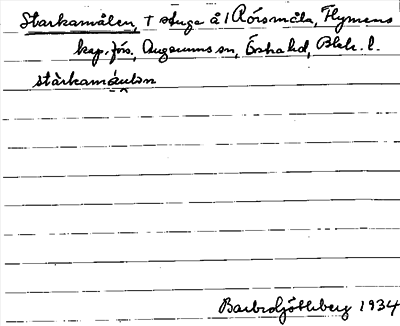 Starkamålen, † stuga å 1 Rörsmåla, Flymens
kap.förs, Augerums sn, Östra hd, Blek. l.
stàrkamå̀ulən
Barbro Götleberg 1934